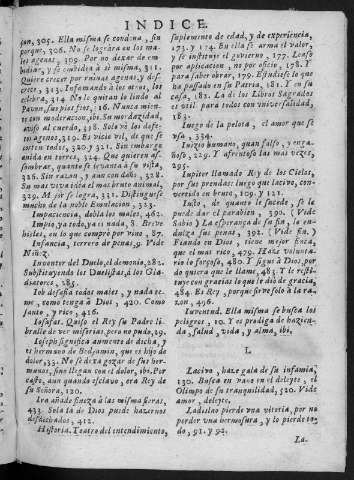 INDICE.
jan, 305. Ella misma se condena, sin
porque, 306. No se lográra con los ma-
les agenos, 309. Por no dexar de em-
bidiar, y se embidia à sì misma, 311.
Quiere crecer por ruinas agenas, y des-
crece, 313. Infamando à los otros, los
celebra, 314 No le quitan lo lindo al
Pavon, sus pies feos, 16. Nunca mien-
te con moderacion, ibi. Su mordazidad,
aviso al cuerdo, 318. Solo vè los defe-
tos agenos, 319. Es vidal vil, de que se
en todos, 320. y 321. Sin embarga
anida en torres, 324. Que quieren as-
sombrar, quanto se levanta à su vista,
326. Sin razon, y aun con daño, 328.
Su mas viva uña el mas bruto animal,
329. Mejor se logra, 331. Distinguese
mucho de la noble emulacion, 333.
Impaciencia, dobla los males, 462.
Impio, ya todo, ya nada, 8. Breve-
biẽles, en lo que compre por uno, 87.
Infancia, terreno de penas, 9. Vide
Niñez.
Inventor del Duelo, el demonio, 282.
Substituyendo los Duelistas, à los Gla-
diatores, 285.
Iob desafia todos males, y nada te-
me, como tenga à Dios, 420. Como
santo, y rico, 416.
Iosafat. Quiso el Rey su Padre li-
bralle de ver miserias, pero no pudo, 29.
Ioseph significa aumento de dicha, y
es hermano de Benjamin, que es hijo de
dolor, 35. No se dexa gozar de sus her-
manos, sino llegan con el dolor, ibi. Por
casto, aun quando esclavo, era Rey de
su Señora, 120.
Ira añade fineza à las misma fieras,
433. Sola la de Dios puede hazernos
desdichados, 412.
Historia. Teatro del entendimiento,
suplemento de edad, y de experiencia,
173. y 174. En ella se arma el valor,
y se instituye el govierno, 177. Lease
por aplicacion, no por oficio, 178. Y
para saber obrar, 179. Estudiese lo que
ha passado en su Patria, 181. Y en su
casa, 182. La de los Libros Sagrados
es util para todos con universalidad,
183.
Iuego de la pelota, el amor que se
usa, 354.
Iuizio humano, quan falso, y enga-
ñoso, 229. Y afrentoso las mas vezes,
295.
Iupiter llamado Rey de los Cielos,
por sus prendas: luego que lacivo, con-
vertido en bruto, 109. y 121.
Iusto, de quando le sucede, se le
puede dar el parabien, 390. (Vide
Sabio) La esperança de su fin, le en-
dulza sus penas, 392. (Vide fin.)
Fiando en Dios, tiene mejor finca,
que el mas rico, 479. Haze volunta-
rio lo forçoso, 480. Y sigue à Dios, por
do quiera que le llame, 483. Y le resti-
tuye con gracias lo que le diò de gracia,
484. Es Rey, porque sirve solo à la ra-
zon, 496.
Iuventud. Ella misma se busca los
peligros, 10. Y es prodiga de hazien-
da, salud, vida, y alma, ibi.
L
Lacivo, haze gala de su infamia,
130. Busca en vano en el deleyte, el
Olimpo de su tranquilidad, 520. Vide
amor, deleyte.
Ladislao pierde una vitoria, por no
perder una hermosura, y lo pierde to-
do, 91. y 92.
La-